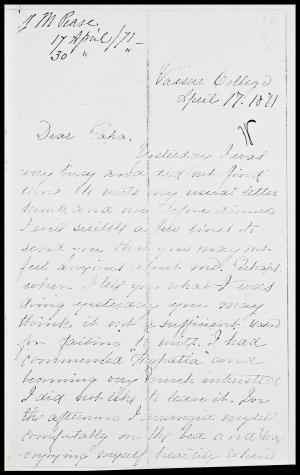 J M Pease
17 April/71-
30 " "
Vassar College
April 17. 1871
Dear Papa,
Yesterday I was
very busy and did not find
time to write my usual letter
home, and now before dinner
I will scribble a few lines to
send you that you may not
feel anxious about me. Perhaps
when I tell you what I was
doing yesterday you may
think it not a sufficient reason
for failing to write. I had
commenced "Hypatia" and
becoming very much interested
I did not like to leave it. In
the afternoon I arranged myself
comfortably on the bed and was
enjoying myself heartily when